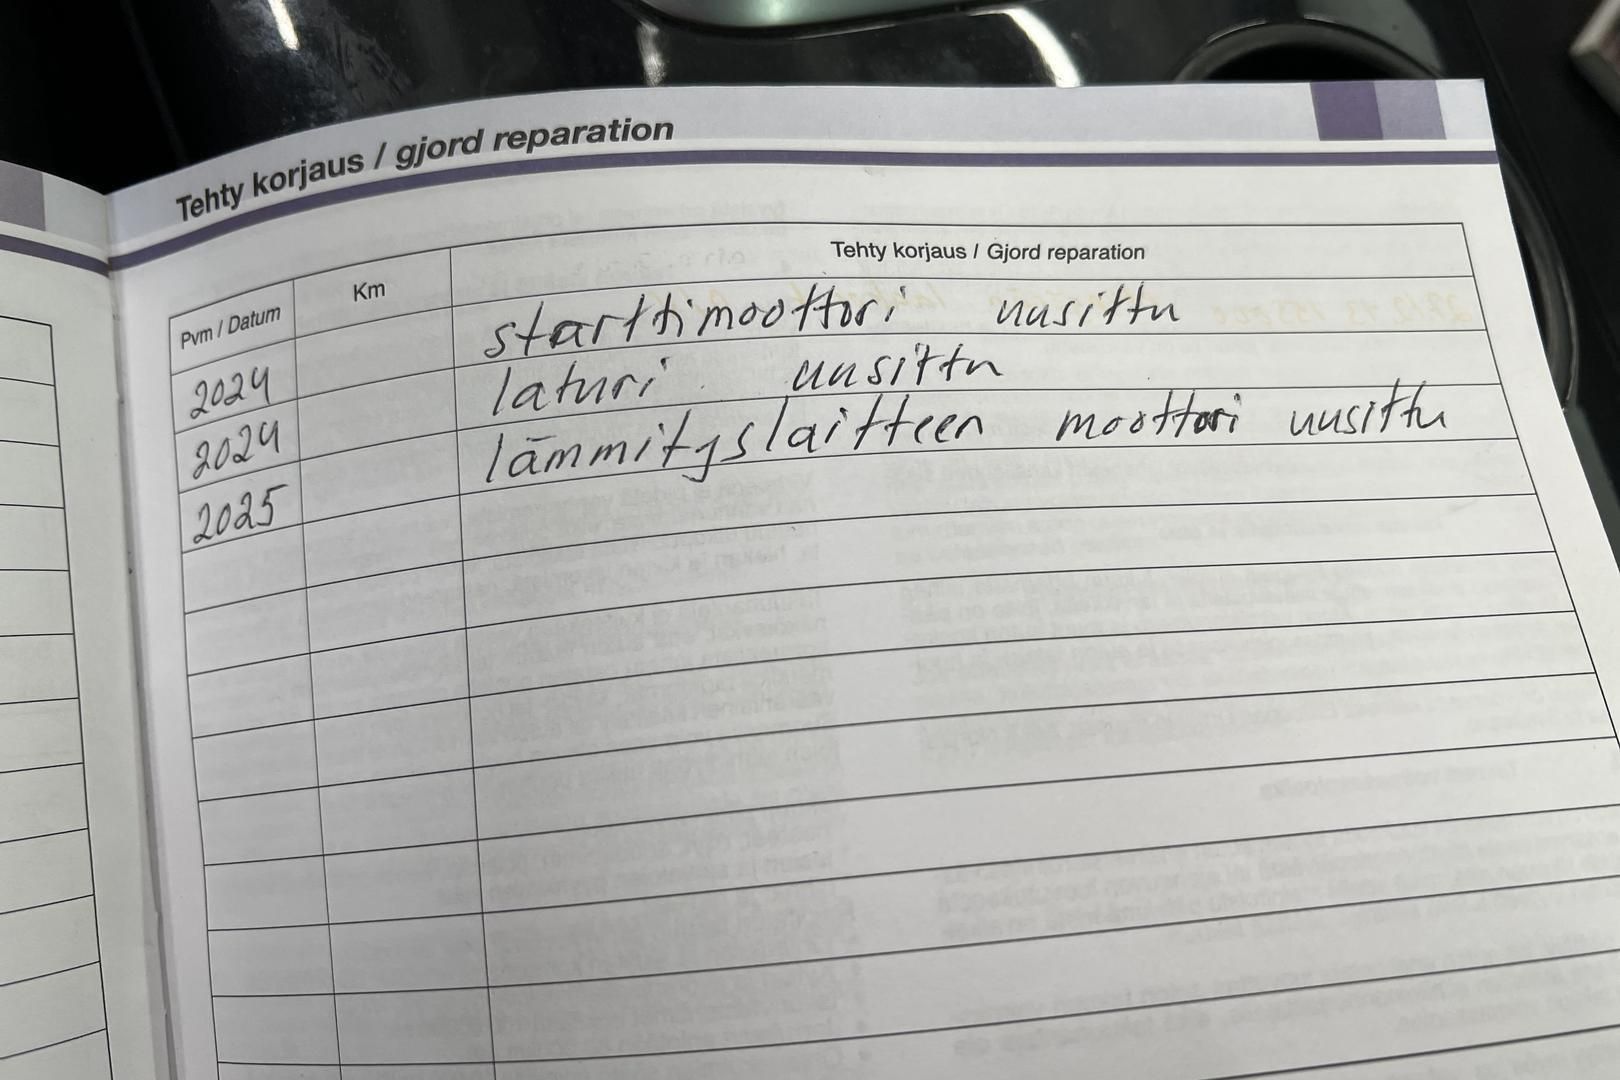 Tehty korjaus / gjord reparation
Pvm / Datum Km Tehty korjaus / Gjord reparation
2024 starttimoottori uusittu
2024 laturi uusittu
2025 lämmityslaitteen moottori uusittu